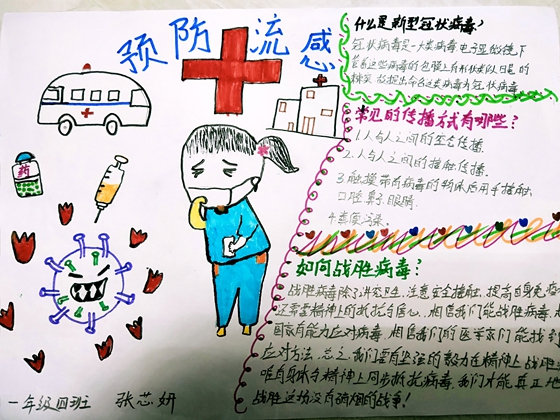 预防流感
什么是新型冠状病毒?
冠状病毒是一大类病毒电子显微镜下
能看这些病毒的包膜上有形状类似日冕的
棘突 故提出命名这类病毒为冠状病毒
常见的传播方式有哪些?
1.人与人之间的空气传播.
2.人与人之间的接触传播.
3.触摸带有病毒的物体后用手接触
口腔鼻子眼睛.
4.粪便污染.
药
如何战胜病毒?
战胜病毒除了讲究卫生、注意安全接触,提高自身免疫
还需要精神上的抵抗与信心,相信我们能战胜病毒 相
国家有能力应对病毒,相信我们的医学家们能找到
应对方法.总之我们要有坚强的毅力在精神上战胜
唯有身体与精神上同步抵抗病毒,我们才能真正地
战胜这场没有硝烟的战争!
一年级四班 张芯妍